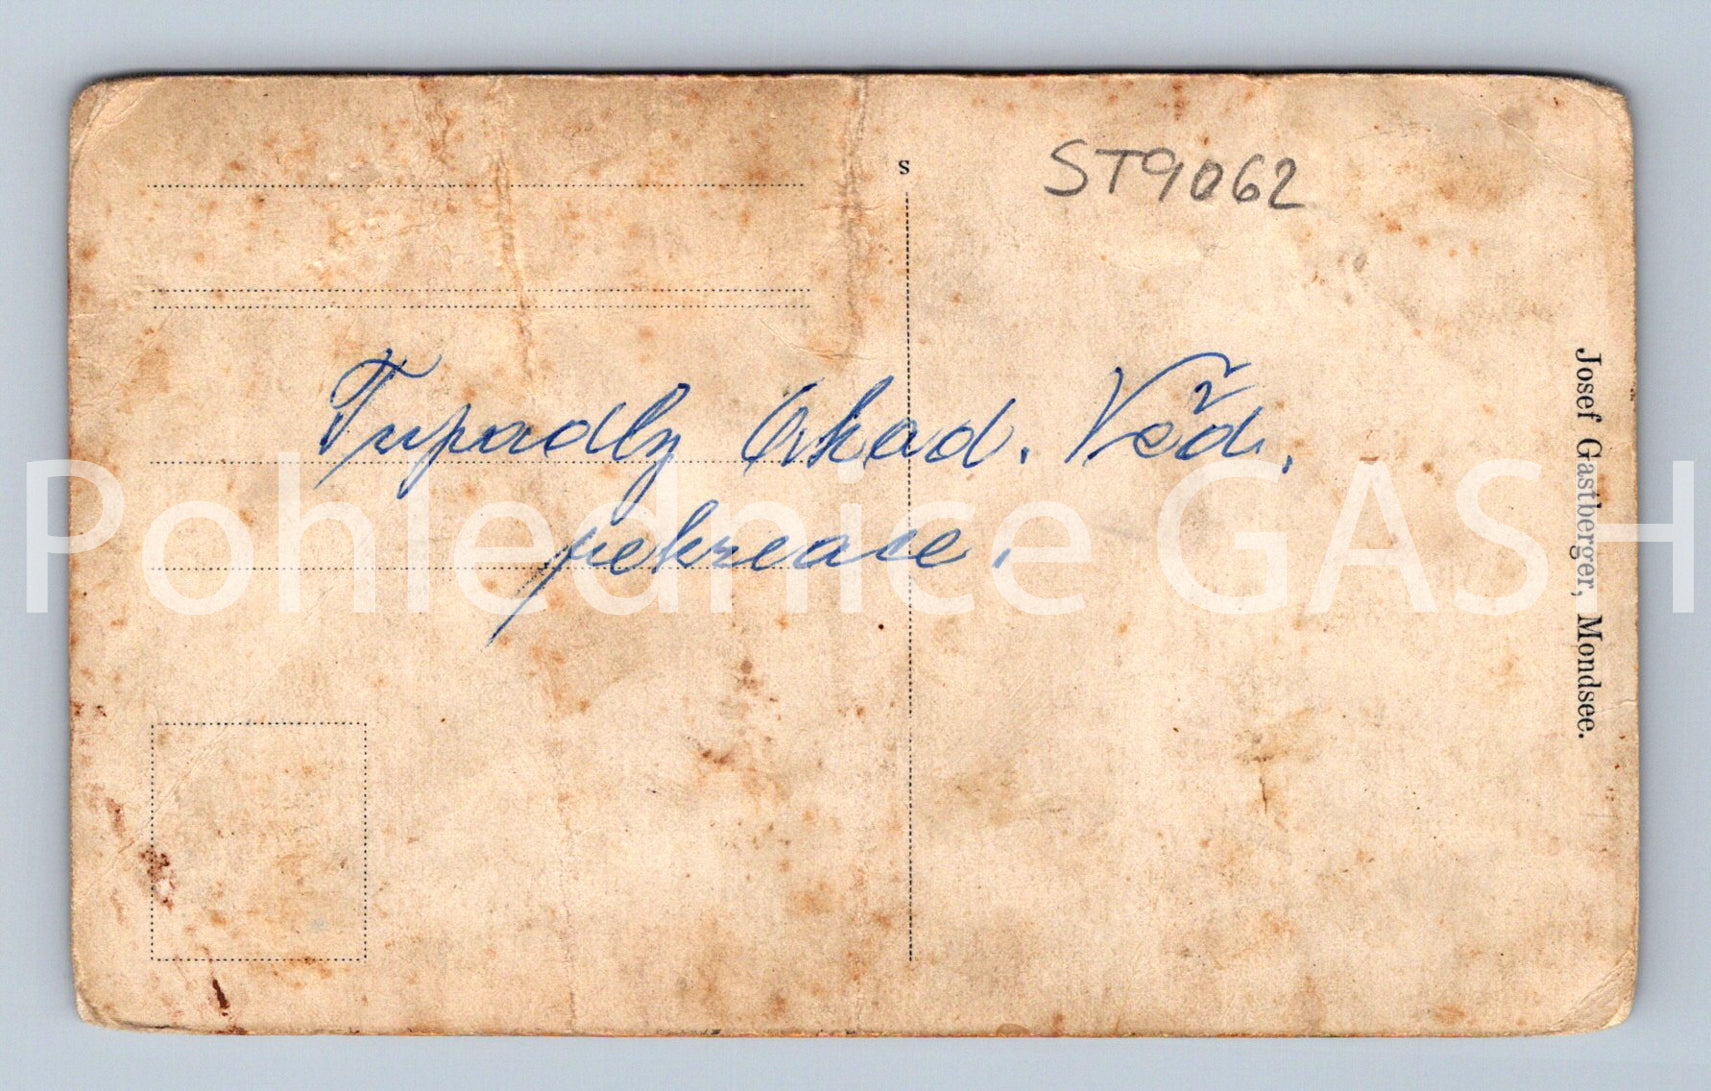 s
ST9062
Tupadly Akad. Věd.
rekreace.
Josef Gastberger, Mondsee.
Pohlednice GASH